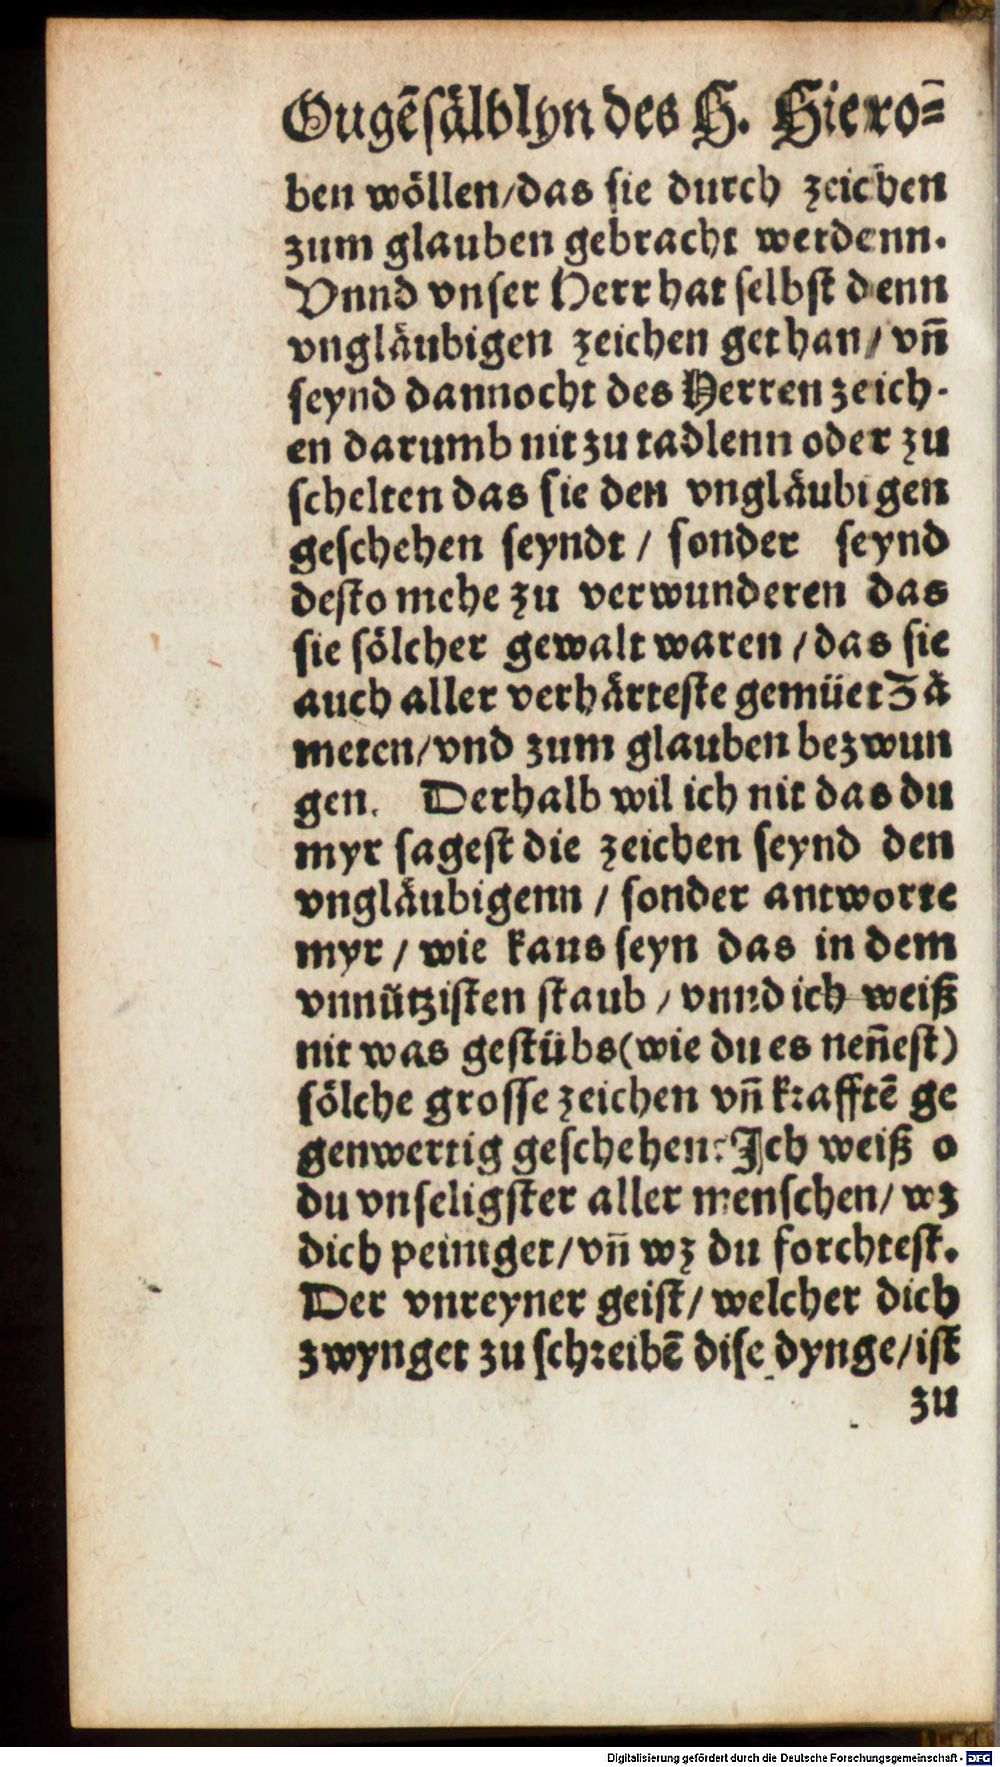 Ougēsälblyn des H. Hiero⸗
ben wöllen/das sie durch zeichen
zum glauben gebracht werdenn.
Vnnd vnser Herr hat selbst denn
vngläubigen zeichen gethan/ vñ
seynd dannocht des Herren zeich-
en darumb nit zu tadlenn oder zu
schelten das sie den vngläubigen
geschehen seyndt / sonder seynd
desto mehe zu verwunderen das
sie sölcher gewalt waren / das sie
auch aller verhärteste gemüet Zä
meten/vnd zum glauben bezwun
gen. Derhalb wil ich nit das du
myr sagest die zeichen seynd den
vngläubigenn / sonder antworte
myr / wie kans seyn das in dem
vnnützisten staub / vnnd ich weiß
nit was gestübs(wie du es neñest)
sölche grosse zeichen vñ krafftē ge
genwertig geschehen: Ich weiß o
du vnseligster aller menschen/ wz
dich peiniget/vñ wz du forchtest.
Der vnreyner geist/ welcher dich
zwynget zu schreibē dise dynge/ist
zu
Digitalisierung gefördert durch die Deutsche Forschungsgemeinschaft - DFG